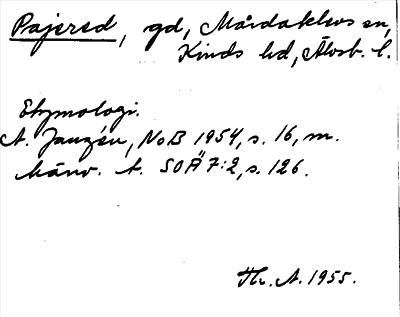 Pajered, gd, Mårdaklevs sn,
Kinds hd, Älvsb. l.
Etymologi.
A. Janzén, NoB 1954, s. 16, m.
hänv. t. SOÄ 7:2, s. 126.
Thr. A. 1955.